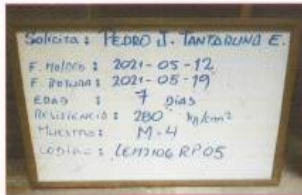 Solicita: PEDRO J. TANTARUNA E.
F. MOLDEO : 2021-05-12
F. ROTURA : 2021-05-19
EDAD : 7 Dias
RESISTENCIA : 280 kg/cm2
MUESTRA : M-4
CODIGO : LEM2106RP05